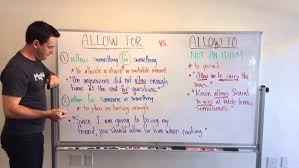 ALLOW FOR vs. ALLOW TO
① allow something for something
* to allocate a share or suitable amount
"The organizers did not allow enough time at the end for questions."
② allow for someone or something
* to plan on being present
"Since I am going to bring my friend, you should allow for him when cooking."
NOT AN IDIOM
* to permit
"Allow me to carry the
"Kevin allows Sharol to win at table tennis sometimes."